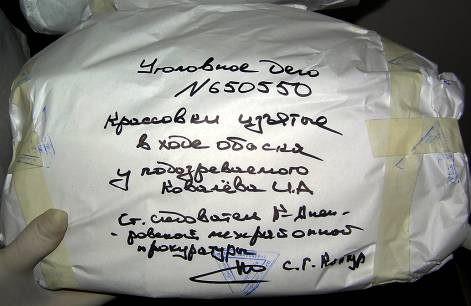 Уголовное Дело
№650550
Кроссовки изъятые
в ходе обыска
у подозреваемого
Ковалёва И.А
Ст. следователь
ровской межрайонной
прокуратуры
С.Г.